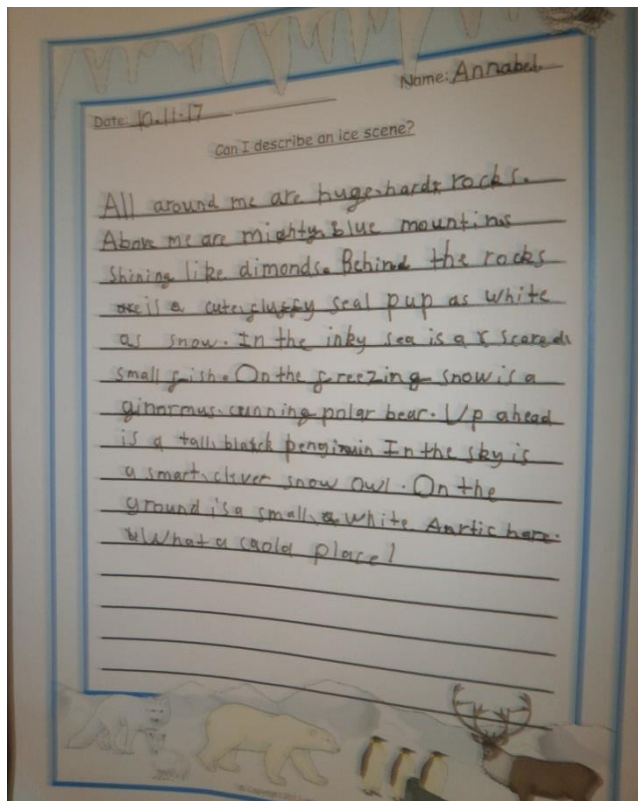 Name: Annabel
Date: 10.11.17
Can I describe an ice scene?
All around me are huge, hard rocks.
Above me are mighty, blue mountins
shining like dimonds. Behind the rocks
is a cute, fluffy seal pup as white
as snow. In the inky sea is a scared,
small fish. On the freezing snow is a
ginormus, cunning polar bear. Up ahead
is a tall, black penginuin In the sky is
a smart, clever snow owl. On the
ground is a small, white Anrtic hare.
What a coold place!